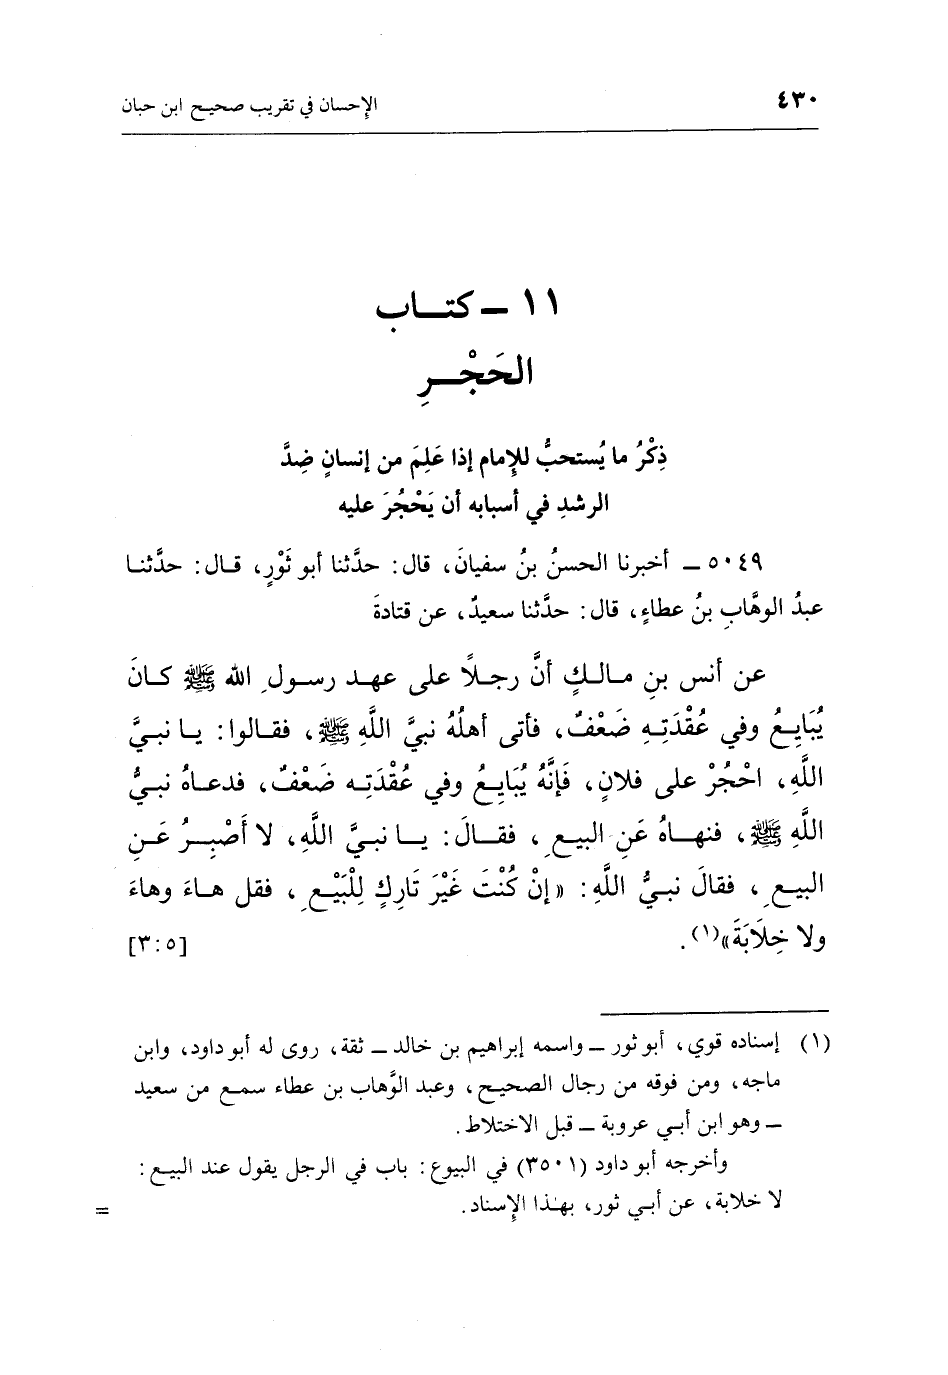 ٤٣٠ الإحسان في تقريب صحيح ابن حبان
١١ ــ كتــاب
الحَجْــرِ
ذِكْرُ ما يُستحبُّ للإمام إذا عَلِمَ من إنسانٍ ضِدَّ
الرشدِ في أسبابه أن يَحْجُرَ عليه
٥٠٤٩ ــ أخبرنا الحسنُ بنُ سفيانَ، قال: حدَّثنا أبو ثَوْرٍ، قـال: حدَّثنـا
عبدُ الوهَّابِ بنُ عطاءٍ، قال: حدَّثنا سعيدٌ، عن قتادةَ
عن أنس بنِ مـالـكٍ أنَّ رجـلاً على عهـد رسـولِ الله ﷺ كـانَ
يُبَايِعُ وفي عُقْدَتِـهِ ضَعْفٌ، فأتى أهلُهُ نبيَّ اللَّهِ ﷺ، فقـالوا: يـا نبـيَّ
اللَّهِ، احْجُرْ على فلانٍ، فَإنَّهُ يُبَايِعُ وفي عُقْدَتِـه ضَعْفٌ، فدعـاهُ نبـيُّ
اللَّهِ ﷺ، فنهـاهُ عَنِ البيـعِ، فقـالَ: يــا نبـيَّ اللَّهِ، لا أَصْبِــرُ عَـنِ
البيـعِ، فقالَ نبـيُّ اللَّهِ: «إنْ كُنْتَ غَيْرَ تَارِكٍ لِلْبَيْـعِ، فقل هـاءَ وهاءَ
ولا خِلَابَةَ»(١). [٥:٣]
(١) إسناده قوي، أبو ثور ــ واسمه إبراهيم بن خالد ــ ثقة، روى له أبو داود، وابن
ماجه، ومن فوقه من رجال الصحيح، وعبد الوَّهاب بن عطاء سمـع من سعيد
ــ وهو ابن أبـي عروبة ــ قبل الاختلاط.
وأخرجه أبو داود (٣٥٠١) في البيوع: باب في الرجل يقول عند البيع:
لا خلابة، عن أبـي ثور، بهـٰذا الإسناد. =